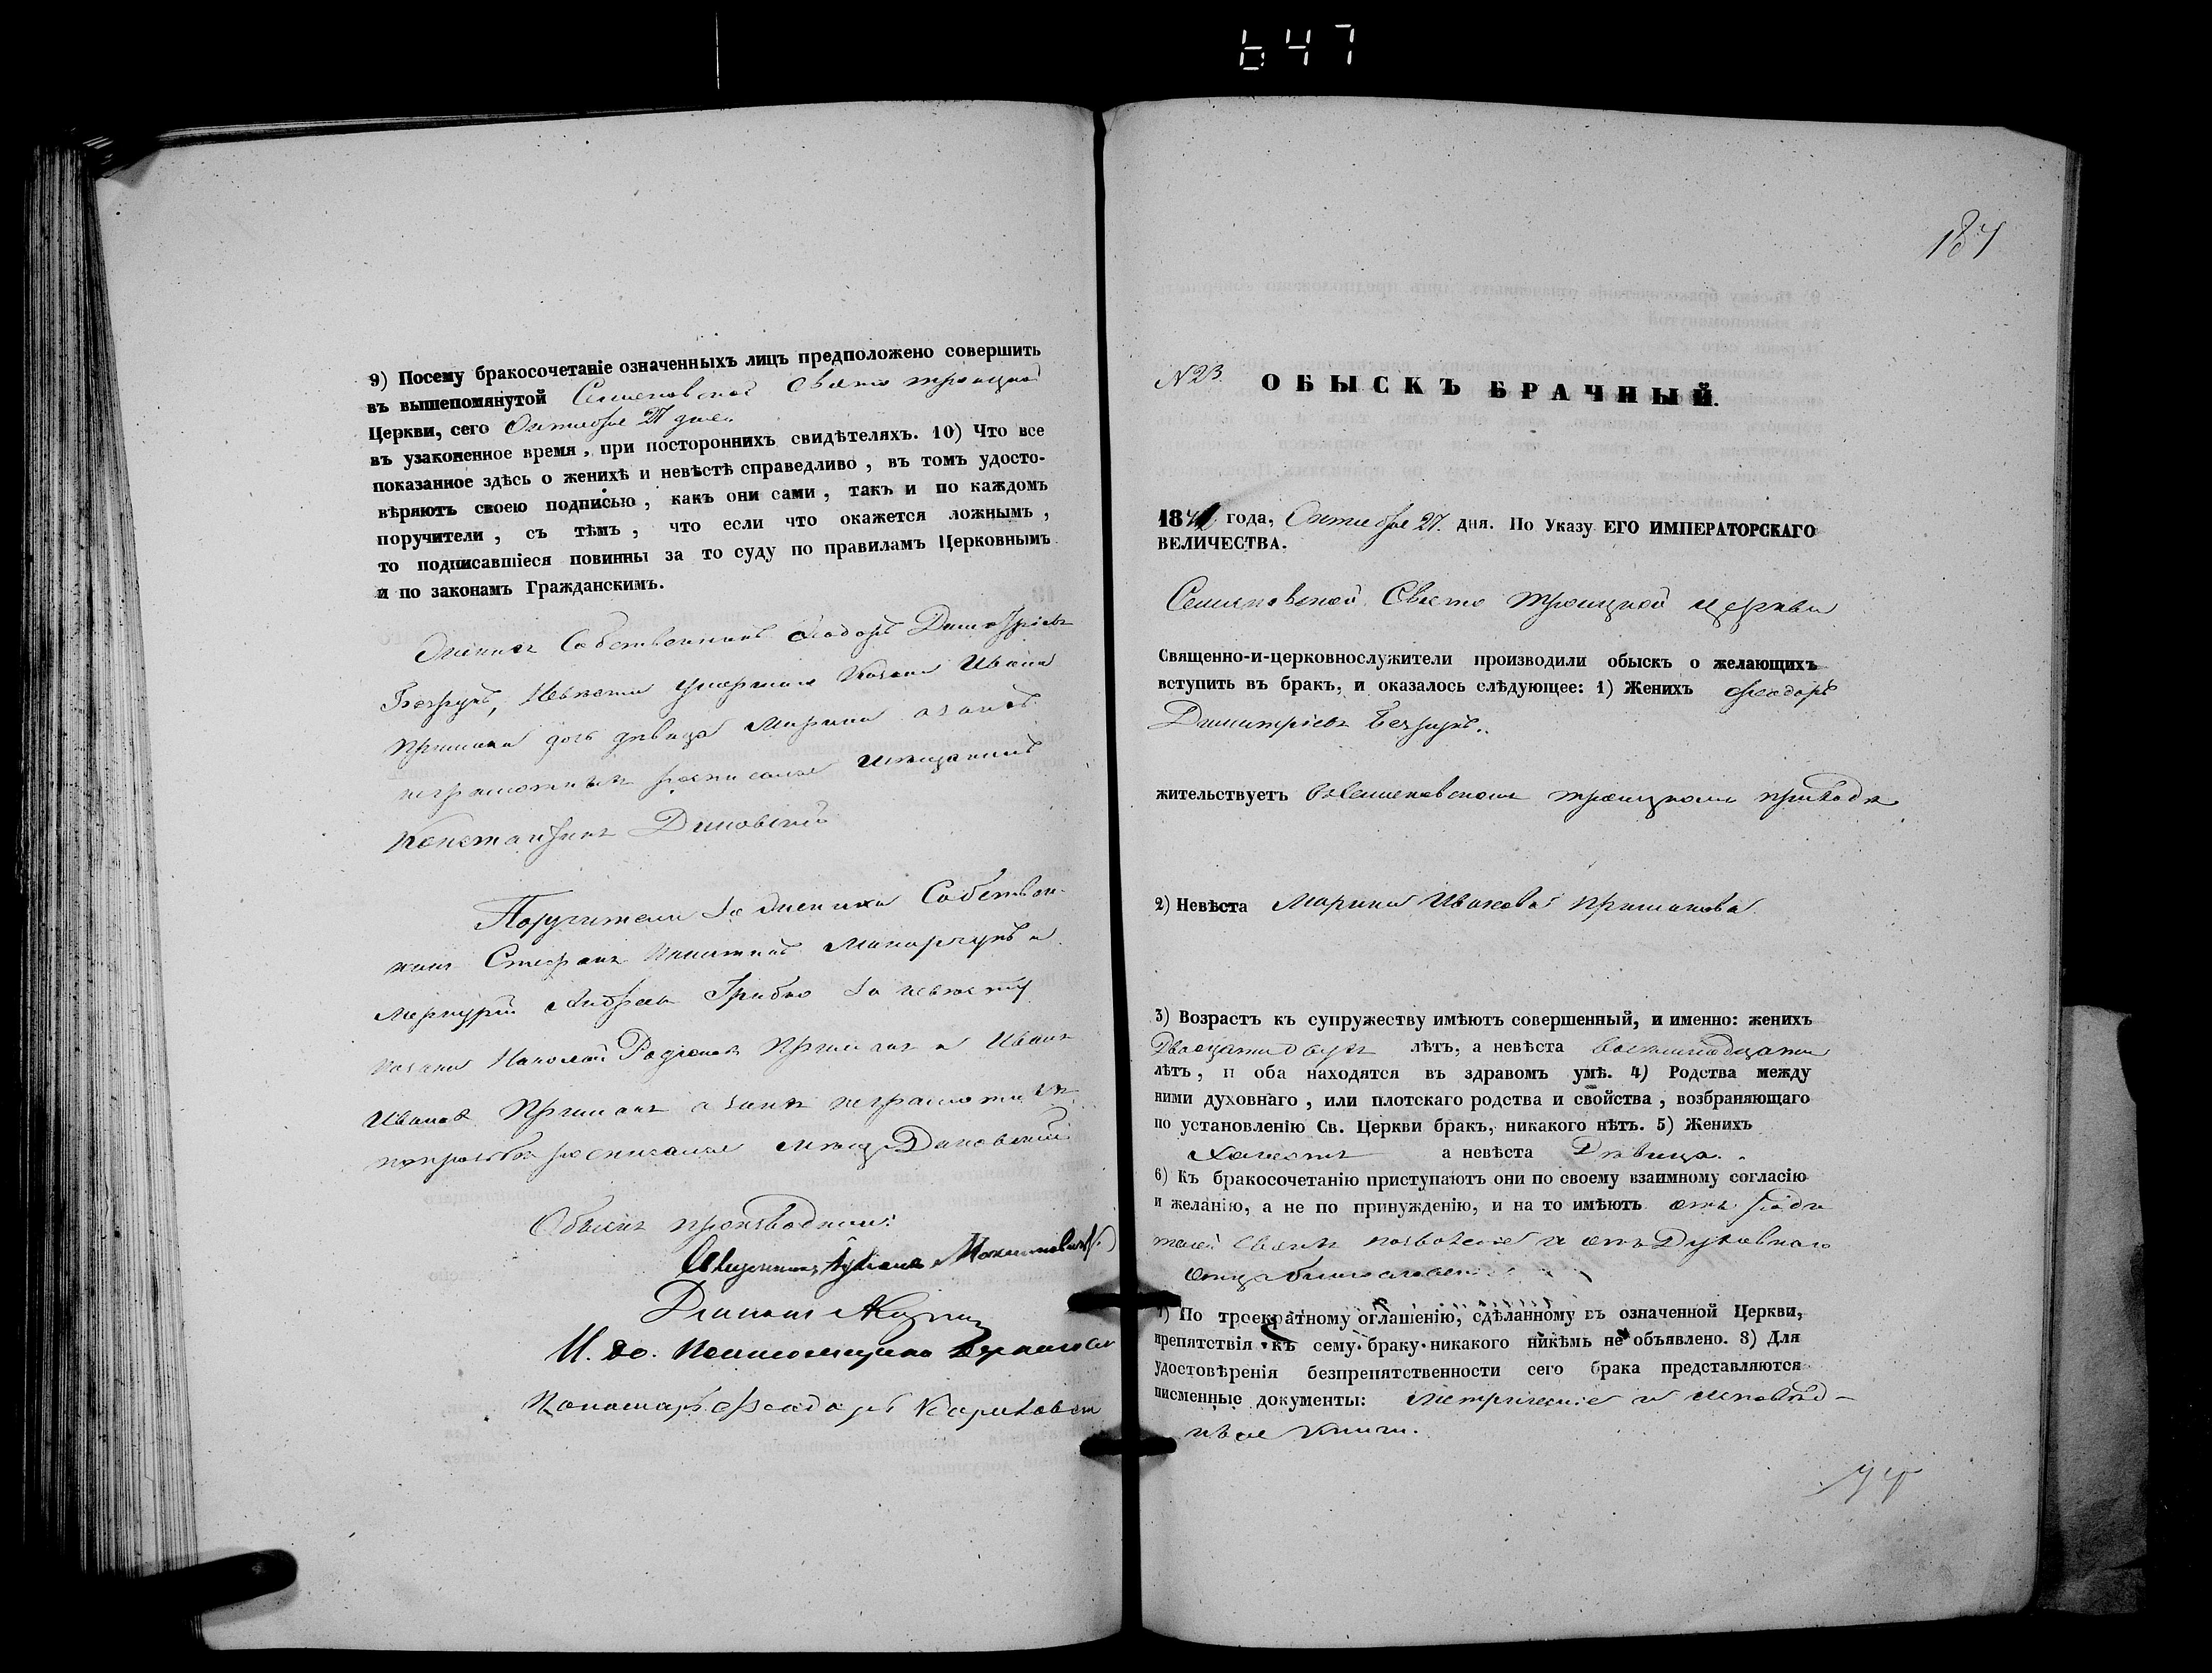 647
9) Посему бракосочетаніе означенныхъ лицъ предположено совершить
въ вышепомянутой Семеновской Свято Троицкой
Церкви, сего Октября 27 дня.
въ узаконенное время, при постороннихъ свидѣтеляхъ. 10) Что все
показанное здѣсь о женихѣ и невѣстѣ справедливо, въ томъ удосто-
вѣряютъ своею подписью, какъ они сами, такъ и по каждомъ
поручители, съ тѣмъ, что если что окажется ложнымъ,
то подписавшіеся повинны за то суду по правиламъ Церковнымъ
и по законамъ Гражданскимъ.
Женихъ Собственникъ Феодоръ Димитріевъ
Невѣста умершаго Козака Ивана
дочь дѣвица Марина а за нихъ
неграмотныхъ росписался
Константинъ
Поручители За Жениха Собствен-
ники Стефанъ Никитинъ Макарчукъ и
Меркурій Андреевъ Грибко За невѣсту
козаки Николай Родіоновъ и Иванъ
Ивановъ а за нихъ неграмотныхъ
по прозбѣ росписался
Обыскъ производили:
Священникъ
И. до.
Пономарь Феодоръ
184
N 23.
ОБЫСКЪ БРАЧНЫЙ.
184 года, Октября 27. дня. По Указу ЕГО ИМПЕРАТОРСКАГО
ВЕЛИЧЕСТВА.
Семеновской Свято Троицкой церкви
Священно-и-церковнослужители производили обыскъ о желающихъ
вступить въ бракъ, и оказалось слѣдующее: 1) Женихъ Феодоръ
Димитріевъ
жительствуетъ въ Семеновскомъ Троицкомъ приходѣ
2) Невѣста Марина Иванова
3) Возрастъ къ супружеству имѣютъ совершенный, и именно: женихъ
Двадцати двухъ лѣтъ, а невѣста Восемнадцати
лѣтъ, и оба находятся въ здравомъ умѣ. 4) Родства между
ними духовнаго, или плотскаго родства и свойства, возбраняющаго
по установленію Св. Церкви бракъ, никакого нѣтъ. 5) Женихъ
Холостъ а невѣста Дѣвица.
6) Къ бракосочетанію приступаютъ они по своему взаимному согласію
и желанію, а не по принужденію, и на то имѣютъ отъ роди
телей своихъ позволеніе и отъ Духовнаго
отца благословеніе
7) По троекратному оглашенію, сдѣланному въ означенной Церкви,
препятствія къ сему браку никакого никѣмъ не объявлено. 8) Для
удостовѣренія безпрепятственности сего брака представляются
писменные документы: Метрическіе и исповѣд-
ныя книги.